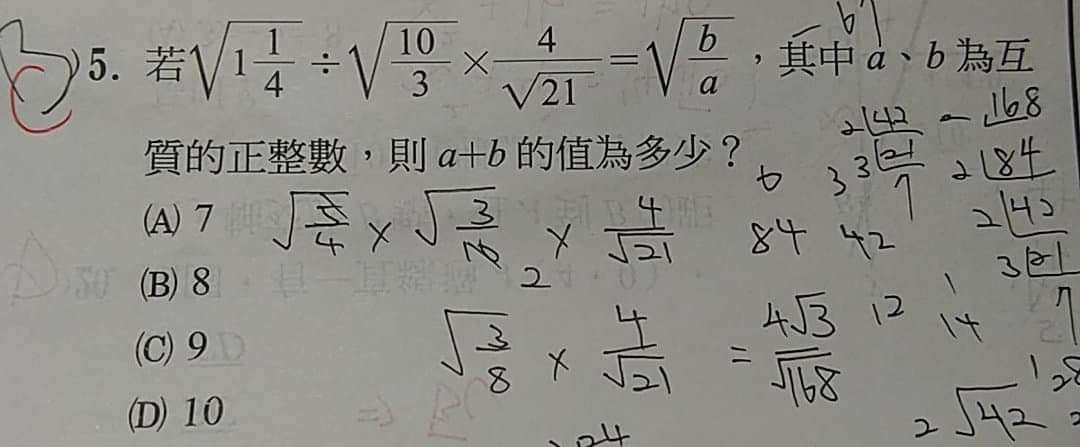 5. 若√(1 1/4) ÷ √(10/3) × 4/√21 = √(b/a)，其中 a、b 為互
質的正整數，則 a+b 的值為多少？
(A) 7
(B) 8
(C) 9
(D) 10
√(5/4) × √(3/10) × 4/√21
2
√(3/8) × 4/√21 = 4√3/√168
84 42
12
14
2 42
3 21
7
168
2 84
2 42
3 21
7
2√42
24